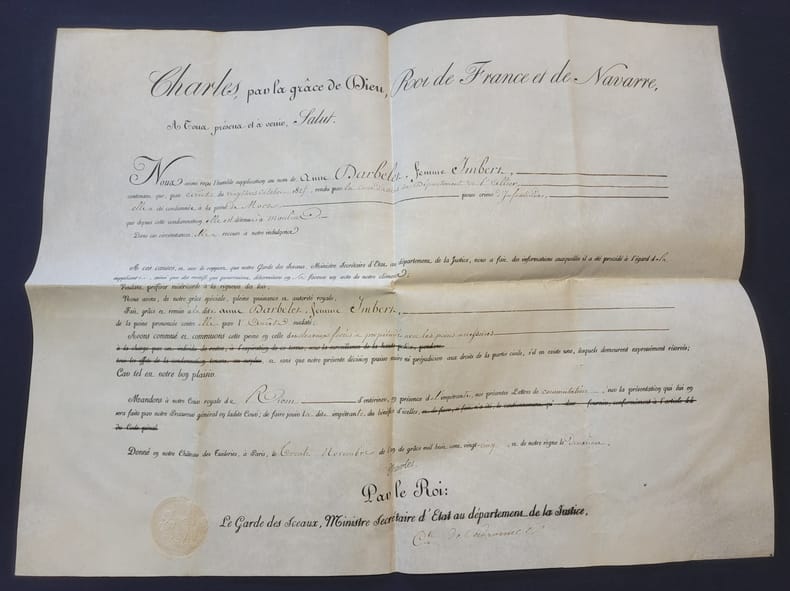 Charles, par la grâce de Dieu, Roi de France et de Navarre,
A Tous présens et à venir, Salut.
Nous avons reçu l'humble supplication au nom de Anne Barbelet, femme Imbert,
contenant que, par arrêt du vingt octobre 1825, rendu par la Cour du Département de l'Allier,
elle a été condamnée à la peine de Mort pour crime d'Infanticide,
que depuis cette condamnation, elle est détenue à moulins
Dans ces circonstances elle a recours à notre indulgence
A ces causes, et sur le rapport, que notre Garde des Sceaux, Ministre Secrétaire d'État, au département de la Justice, nous a fait, des informations auxquelles il a été procédé à l'égard de la
suppliante, ainsi que des motifs qui pourraient déterminer en sa faveur un acte de notre clémence;
Voulant préférer miséricorde à la rigueur des lois,
Nous avons, de notre grâce spéciale, pleine puissance et autorité royale,
Fait grâce et remise à la dite anne Barbelet, femme Imbert,
de la peine prononcée contre elle par l'Arrêt susdaté;
Avons commué et commuons cette peine en celle des travaux forcés à perpétuité avec les peines accessoires
à la charge par
tous les effets de la condamnation et sans que notre présente décision puisse nuire ni préjudicier aux droits de la partie civile, s'il en existe une, lesquels demeurent expressément réservés;
Car tel est notre bon plaisir.
Mandons à notre Cour royale de Riom d'entériner, en présence de l'impétrante, nos présentes Lettres de commutation, sur la présentation qui lui en
sera faite par notre Procureur général en ladite Cour; de faire jouir la dite impétrante, du bénéfice d'icelles, conformément à l'article
du Code pénal
Donné en notre Château des Tuileries, à Paris, le trente Novembre de l'an de grâce mil huit cent vingt-cinq, et de notre règne le deuxième.
Charles
Par le Roi:
Le Garde des Sceaux, Ministre Secrétaire d'État au département de la Justice,
Cte de Peyronnet